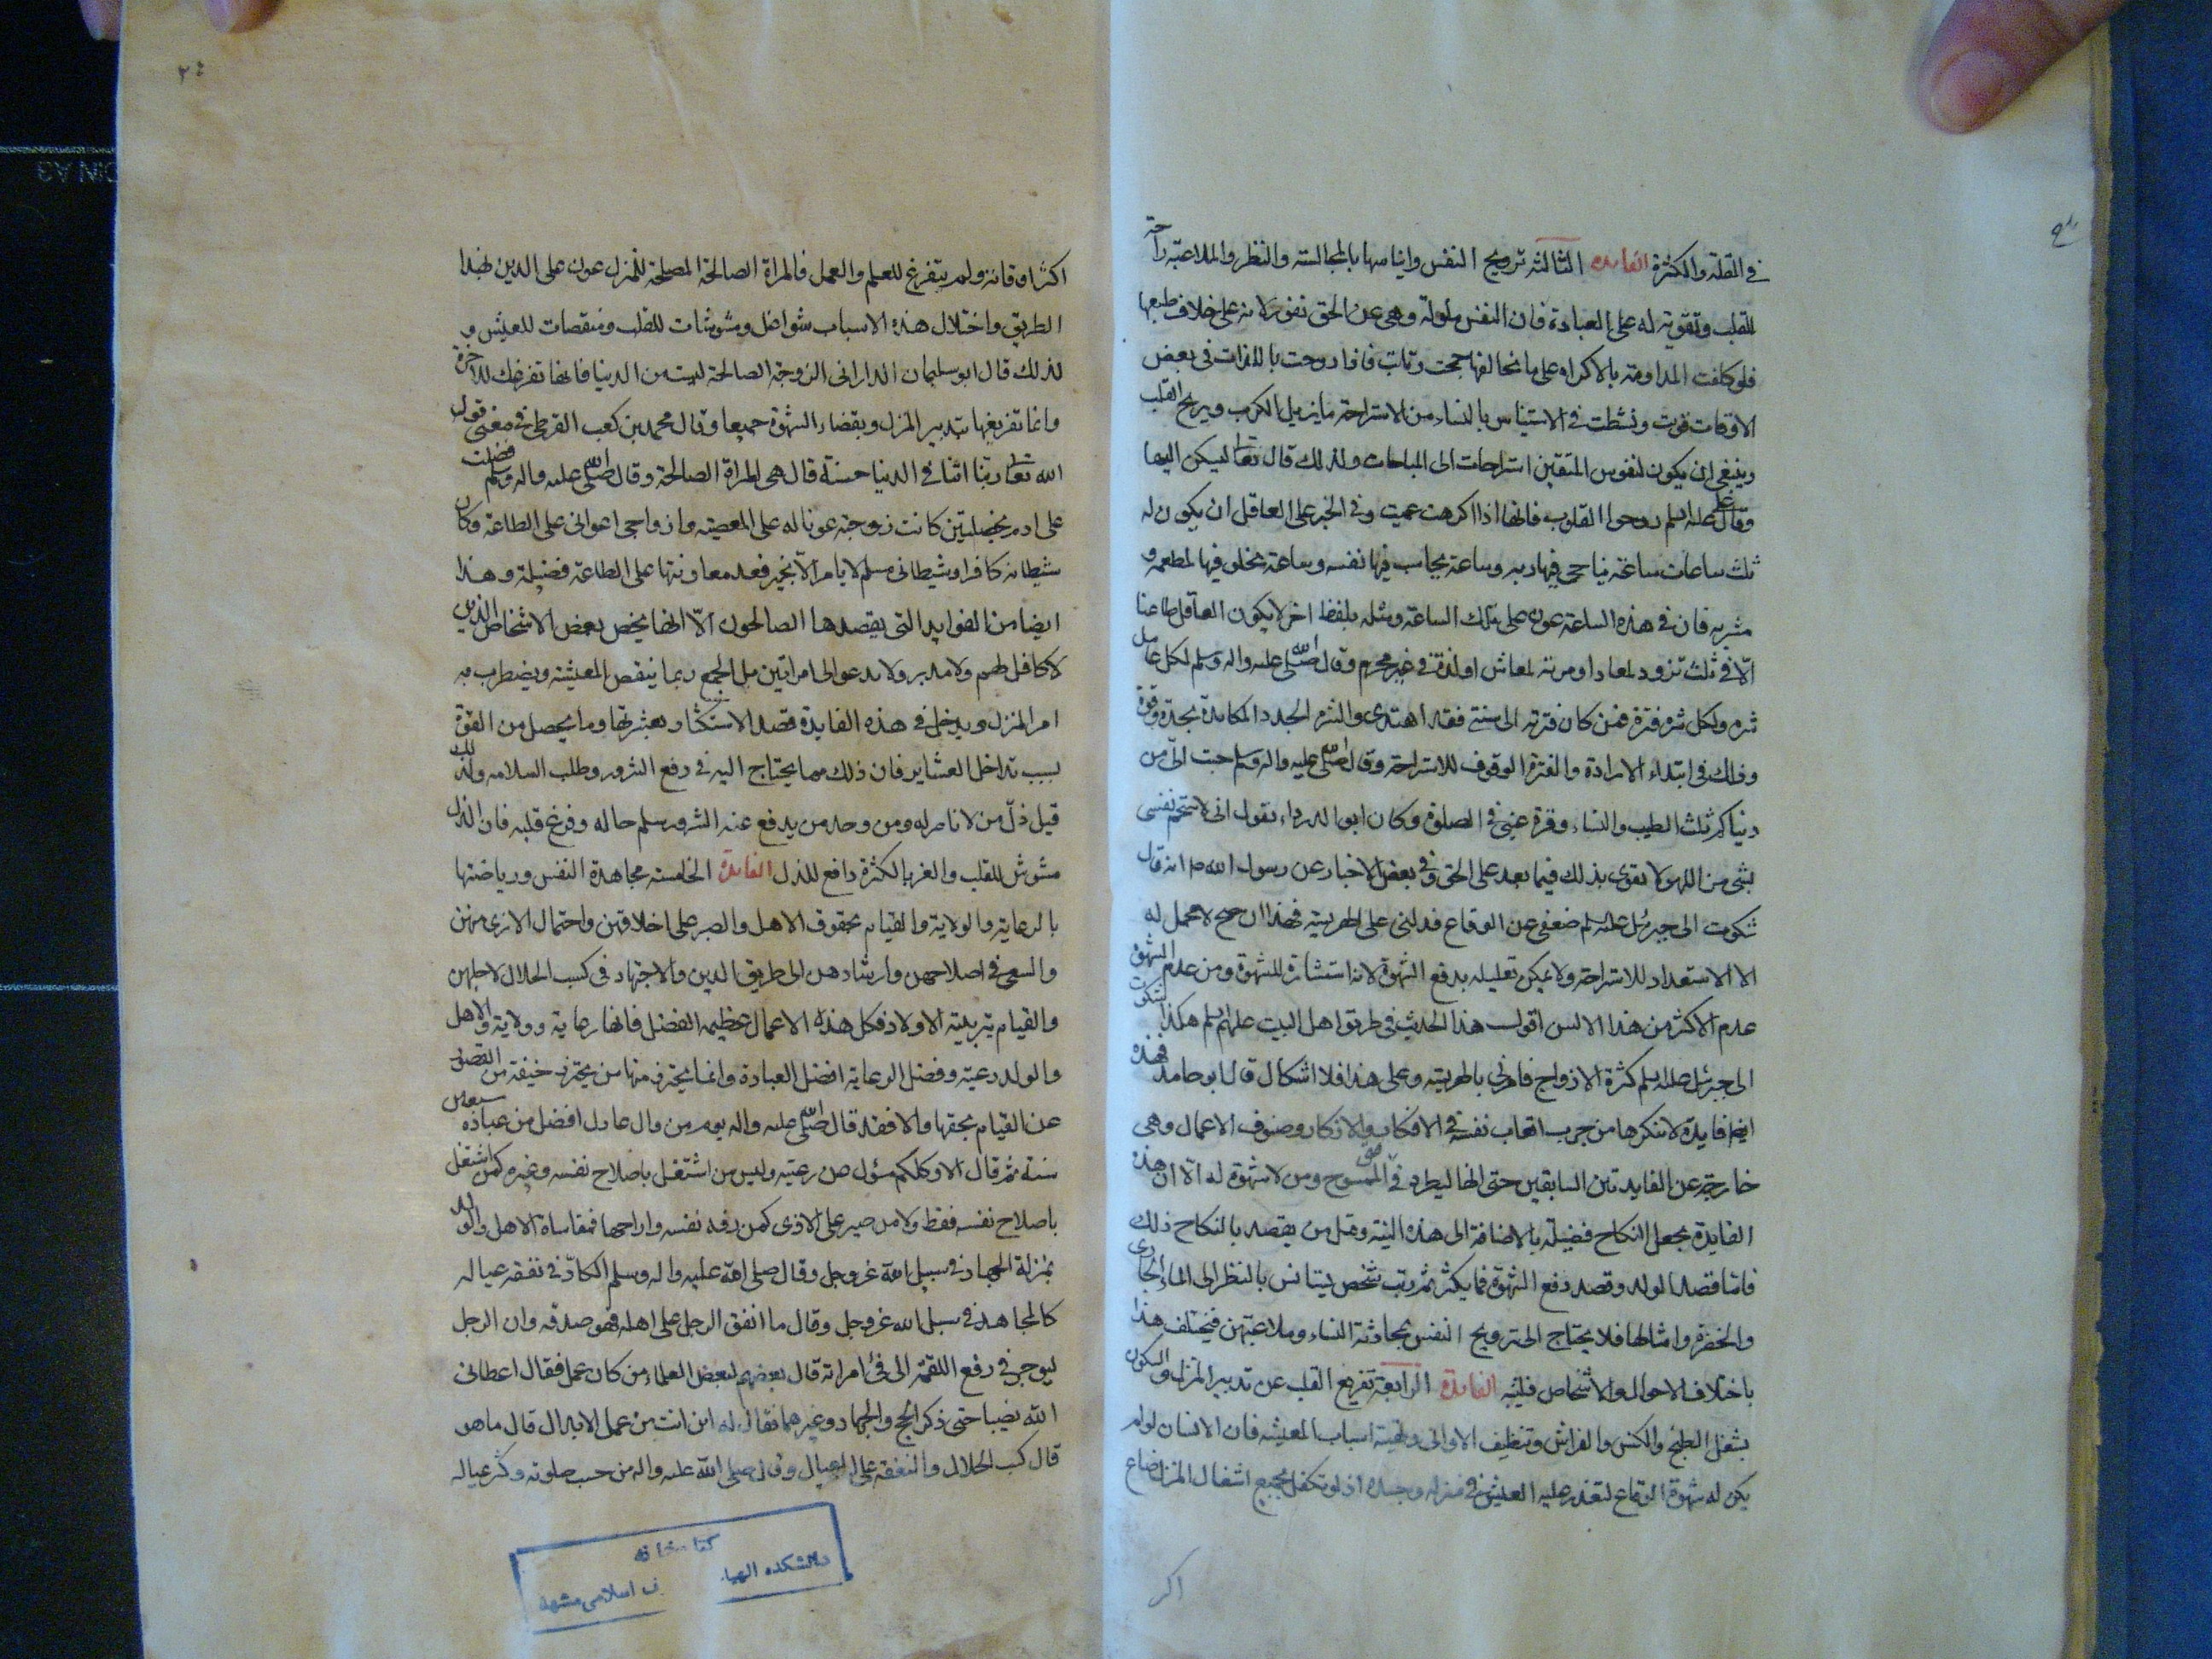 في القلة والكثرة الفايده الثالثه ترويح النفس وايناسها بالمجالسة والنظر والملاعبة راحة
للقلب وتقوية له على العبادة فان النفس ملولة وهي عن الحق نفور لانه على خلاف طبعها
فلو كلفت المداومة بالاكراه على ما يخالفها جمحت وتابت فاذا روحت باللذات في بعض
الاوقات قويت ونشطت في الاستيناس بالنساء من الاستراحة ما يزيل الكرب ويريح القلب
وينبغي ان يكون لنفوس المتقين استراحات الى المباحات ولذلك قال تعالى ليسكن اليها
وقال علي عليه السلم روحوا القلوب فانها اذا اكرهت عميت وفي الخبر على العاقل ان يكون له
ثلث ساعات ساعة يناجي فيها ربه وساعة يحاسب فيها نفسه وساعة يخلو فيها لمطعمه و
مشربه فان في هذه الساعة عون على تلك الساعة ومثله بلفظ اخر لا يكون العاقل طاعنا
الّا في ثلث تزود لمعاد او مرمة لمعاش او لذة في غير محرم وقال صلى الله عليه واله وسلم لكل عامل
شره ولكل شره فترة فمن كان فترته الى سنتي فقد اهتدى والشره الجدد المكابدة بحدة وقوة
وذلك في ابتداء الارادة والفترة الوقوف للاستراحة وقال صلى الله عليه واله وسلم حبب الىّ من
دنياكم ثلث الطيب والنساء وقرة عيني في الصلوة وكان ابو الدرداء يقول اني لاستجم نفسي
بشي من اللهو لا تقوى بذلك فيما بعد على الحق وفي بعض الاخبار عن رسول الله ص انه قال
شكوت الى جبرئل عليه السلم ضعفي عن الوقاع فدلني على الهريسة فهذا ان صح لا محمل له
الا الاستعداد للاستراحة ولا يمكن تعليله بدفع الشهوة لانه استشارة للشهوة ومن عدم الشهوة
عدم الاكثر من هذا الانس اقول هذا الحديث في طريق اهل البيت عليهم السلم هكذا شكوت
الى جبرئل عليه السلم كثرة الازواج فامرني بالهريسة وعلى هذا فلا اشكال قال ابو حامد فهذه
ايضا فايدة لا ينكرها من جرب اتعاب نفسه في الافكار والاذكار وصنوف الاعمال وهي
خارجة عن الفايدتين السابقين حتى انها ليطرد في حق الممسوح ومن لا شهوة له الّا ان هذه
الفايدة يجعل النكاح فضيلة بالاضافة الى هذه النية وقل من يقصد بالنكاح ذلك
فامّا قصد الولد وقصد دفع الشهوة فما يكثر ثم رب شخص يستانس بالنظر الى الماء الجاري
والخضرة وامثالها فلا يحتاج الى ترويح النفس بمحادثة النساء وملاعبتهن فيختلف هذا
باختلاف الاحوال والاشخاص فليتنبه الفايدة الرابعة تفريغ القلب عن تدبير المنزل والسكون
بشغل الطبخ والكنس والفراش وتنظيف الاواني وتهيئة اسباب المعيشه فان الانسان لو لم
يكن له شهوة الوقاع لتعذر عليه العيش في منزله وحده اذ لو تكفل بجميع اشغال المنزل ضاع
اكثر
اكثر اوقاته ولم يتفرغ للعلم والعمل فالمراة الصالحة المصلحة للمنزل عون على الدين بهذا
الطريق واختلال هذه الاسباب شواغل ومشوشات للقلب ومنغصات للعيش و
لذلك قال ابو سليمان الداراني الزوجة الصالحة ليست من الدنيا فانها تفرغك للاخرة
وانما تفريغها بتدبير المنزل وبقضاء الشهوة جميعا وقال محمد بن كعب القرظي في معنى قول
الله تعالى ربنا اتنا في الدنيا حسنة قال هي المراة الصالحة وقال صلى الله عليه واله وسلم فضلت
على ادم بخصلتين كانت زوجته عونا له على المعصية وازواجي اعواني على الطاعة وكان
شيطانه كافرا وشيطاني مسلم لا يامر الّا بخير فعد معاونتها على الطاعة فضيلة وهذا
ايضا من الفوايد التي يقصدها الصالحون الّا انها يخص بعض الاشخاص الذين
لا كافل لهم ولا مدبر ولا يدعو الى امراتين بل الجمع ربما ينغص المعيشة ويضطرب به
امر المنزل ويدخل في هذه الفايدة قصد الاستكثار بعشيرتها وما يحصل من القوة
بسبب تداخل العشاير فان ذلك مما يحتاج اليه في دفع الشرور وطلب السلامه ولذلك
قيل ذلّ من لا ناصر له ومن وجد من يدفع عنه الشرور سلم حاله وفرغ قلبه فان الذل
مشوش للقلب والعز بالكثرة دافع للذل الفايدة الخامسه مجاهدة النفس ورياضتها
بالرعاية والولاية والقيام بحقوق الاهل والصبر على اخلاقهن واحتمال الاذى منهن
والسعي في اصلاحهن وارشادهن الى طريق الدين والاجتهاد في كسب الحلال لاجلهن
والقيام بتربية الاولاد فكل هذه الاعمال عظيمه الفضل فانها رعاية وولاية والاهل
والولد رعية وفضل الرعاية افضل العبادة وانما يحترز منها من يحترز خيفة من القصور
عن القيام بحقها والا فقد قال صلى الله عليه واله يوم من وال عادل افضل من عبادة سبعين
سنة ثم قال الا وكلكم مسؤل عن رعيته وليس من اشتغل باصلاح نفسه وغيره كمن اشتغل
باصلاح نفسه فقط ولا من صبر على الاذى كمن رفه نفسه واراحها فمقاساة الاهل والولد
بمنزلة الجهاد في سبيل الله عز وجل وقال صلى الله عليه واله وسلم الكادّ في نفقة عياله
كالمجاهد في سبيل الله عز وجل وقال ما انفق الرجل على اهله فهو صدقه وان الرجل
ليوجر في رفع اللقمة الى فيّ امراته قال بعضهم لبعض العلماء من كان عمل فقال اعطاني
الله نصيبا حتى ذكر الحج والجهاد وغيرهما فقال له اين انت من عمل الابدال قال ما هو
قال كسب الحلال والنفقه على العيال وقال صلى الله عليه واله من حسب صلوته وكثر عياله
كتابخانه
دانشكده الهيات
ف اسلامى مشهد
DIN A3